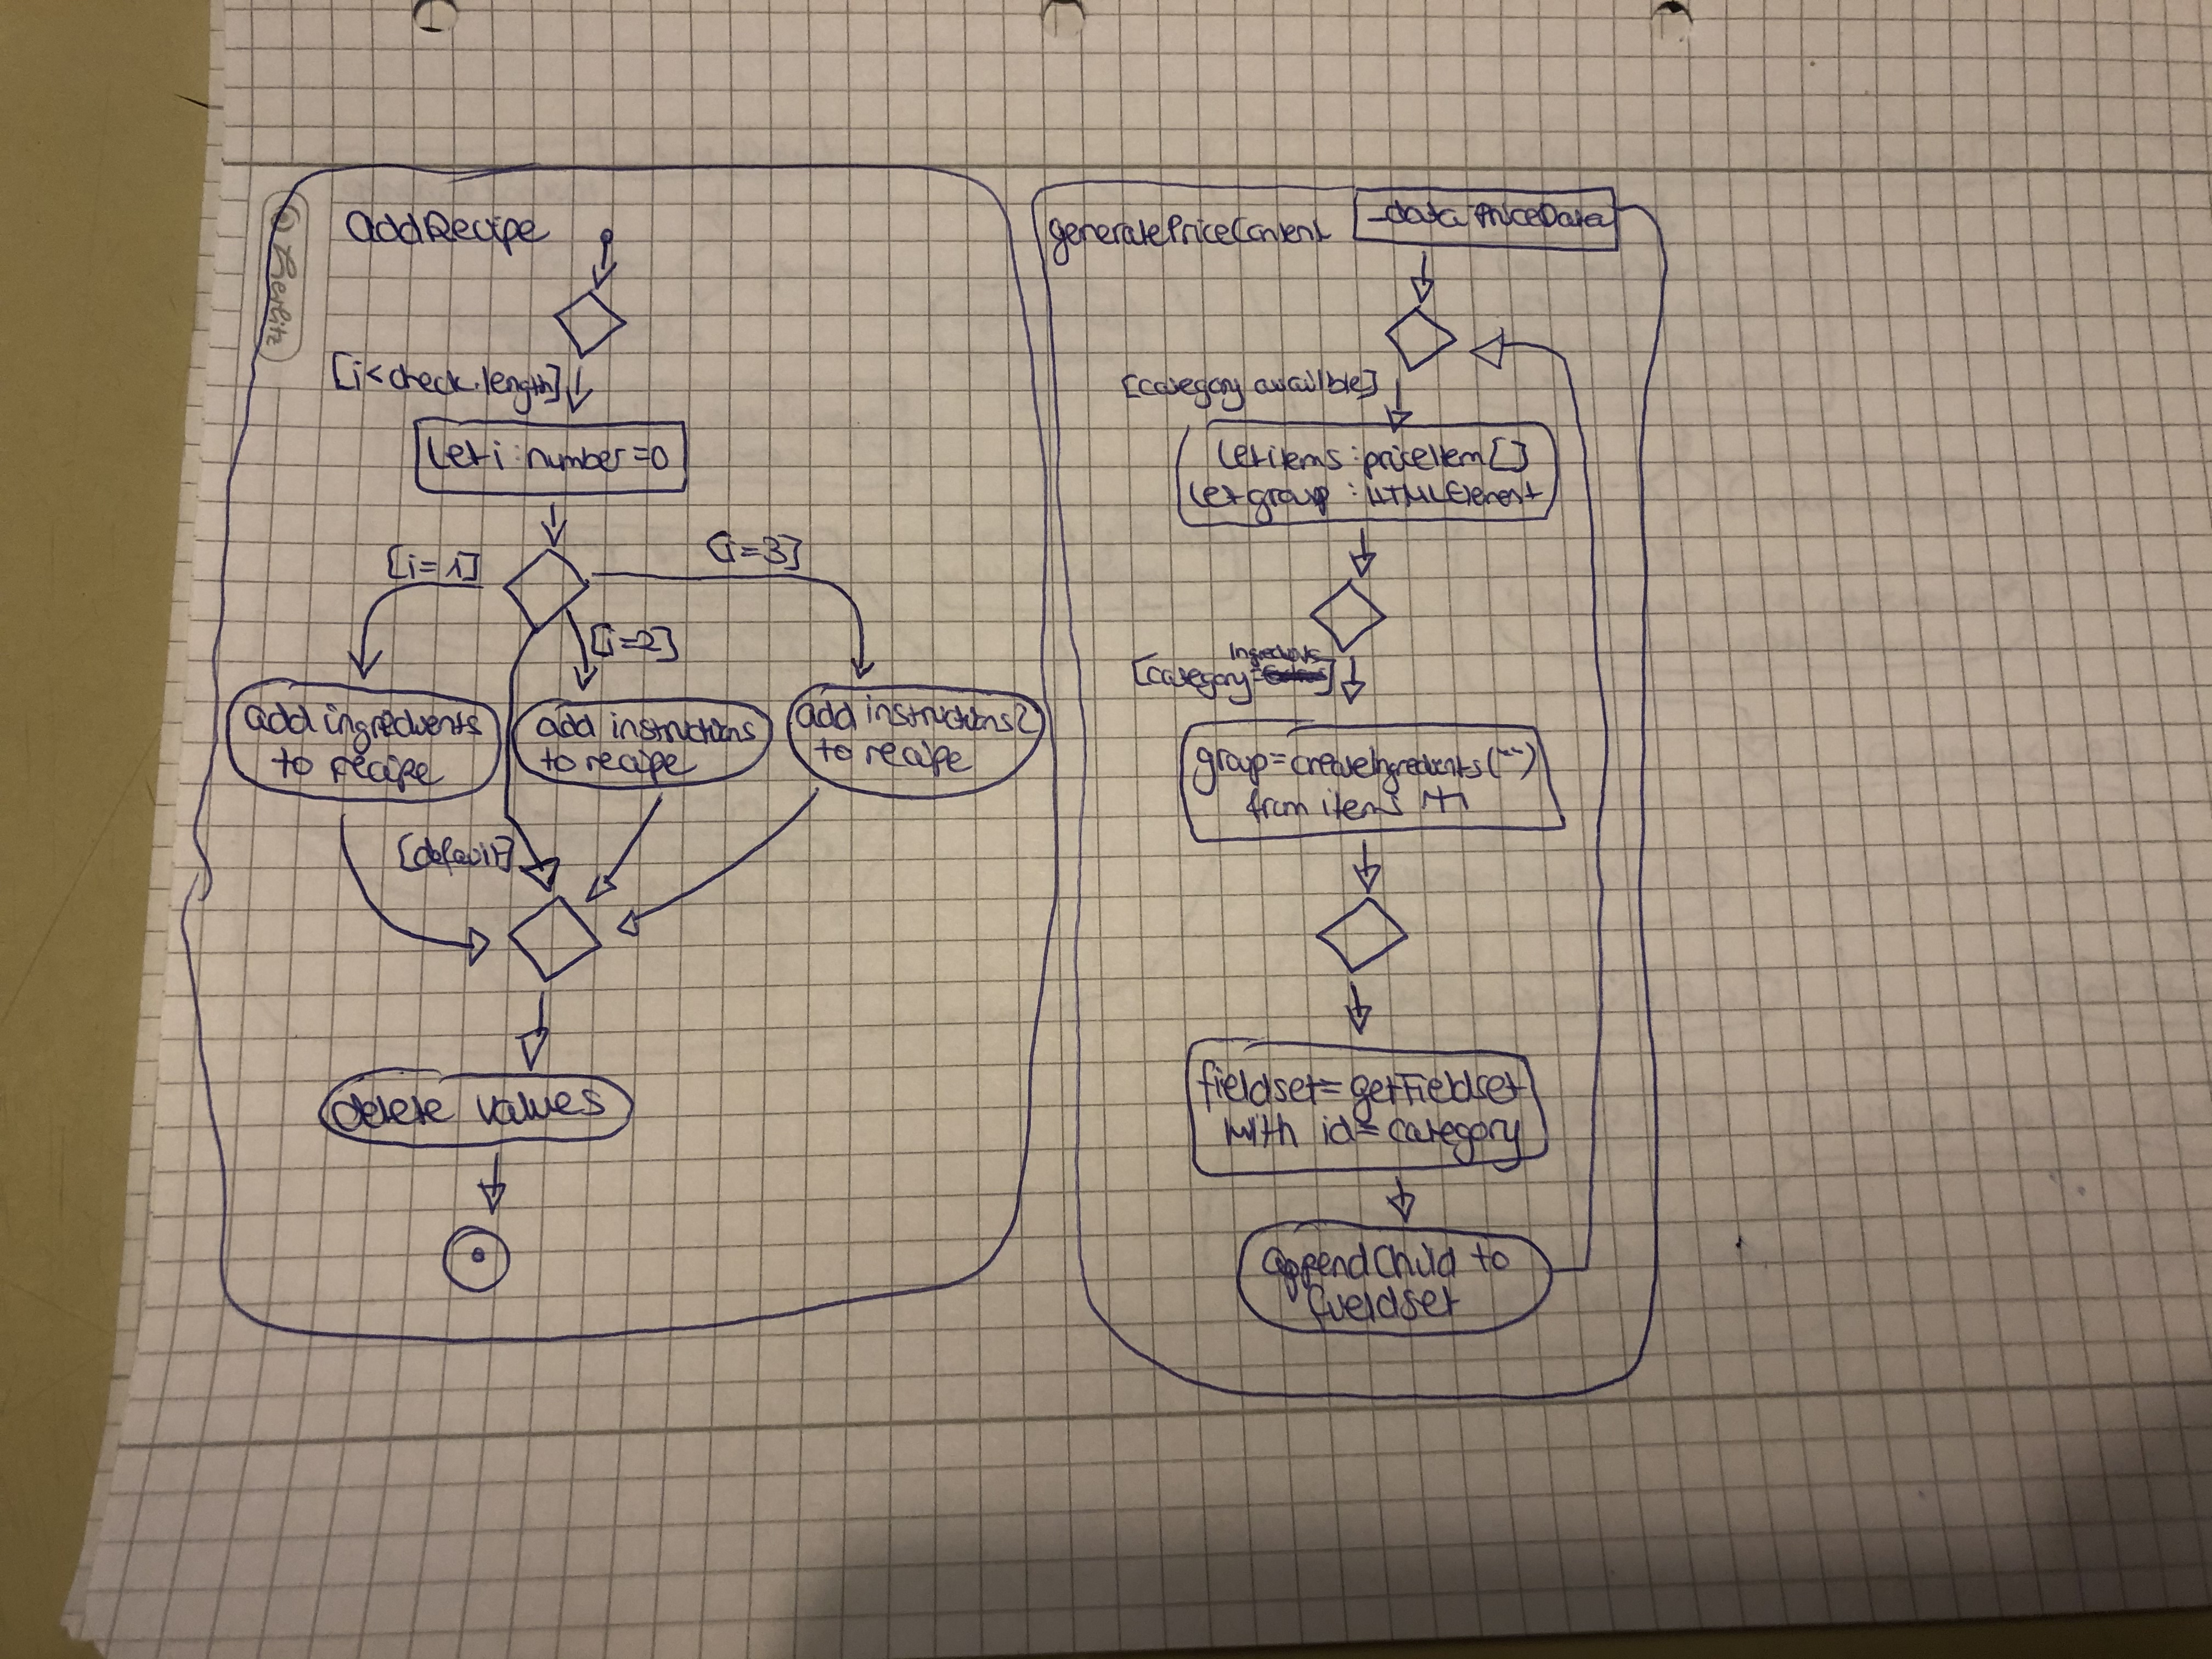 addRecipe
[i<check.length]
let i: number=0
[i=1]
[i=2]
[i=3]
add ingredients
to recipe
add instructions
to recipe
add instructions2
to recipe
[default]
delete values
generatePriceContent
_data: PriceData
[category availble]
let items: priceItem[]
let group: HTMLElement
Ingredients
[category=
group=createIngredients("")
from item
fieldset=getFieldset
with id= category
appendChild to
fieldset